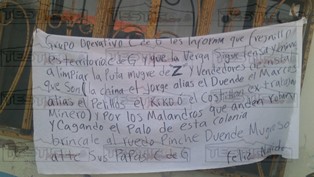 Grupo Operativo C de G les informa que
les territorio de G y que la Verga Sigue tensa y
a limpiar la Puta mugre de Z y Vendedores de
que Son (la china el Jorge alias el Duende el Marcos
alias el Pelillos el KIKO el
Minero) y Por los Malandros que andan Robando
y Cagando el Palo de esta colonia
brincale al Ruedo Pinche Duende Mugroso
atte Sus PaPas C de G
Feliz